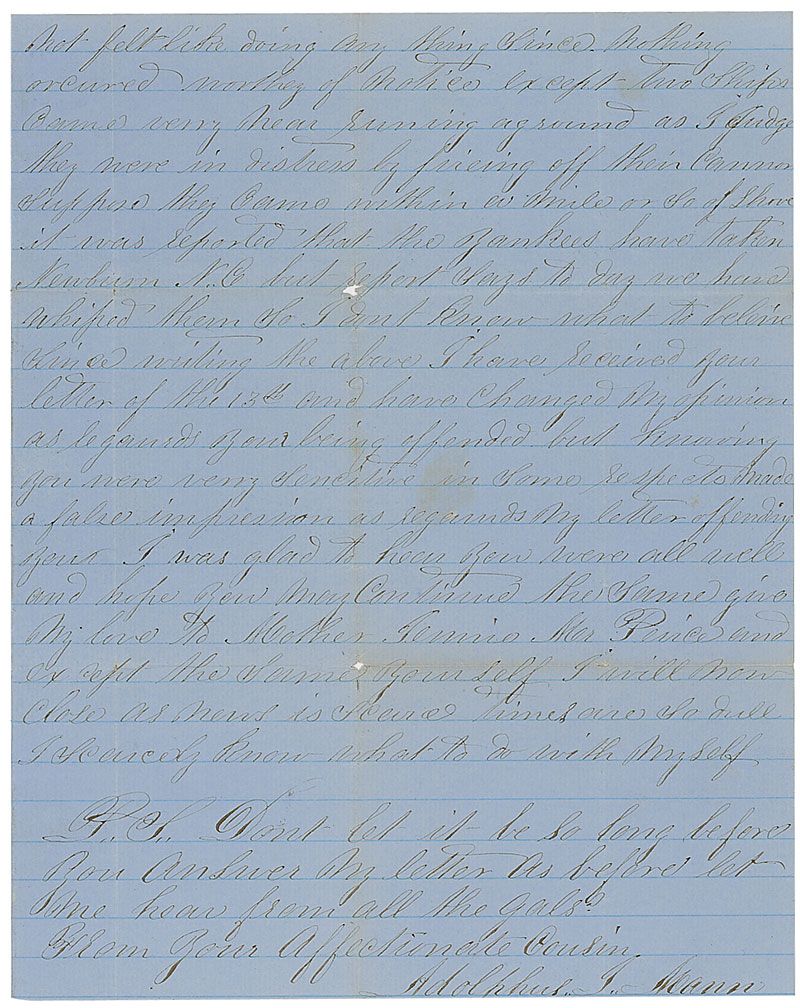 not felt like doing any thing since. Nothing
orcured worthey of notice except two Ships
Came verry near runing aground as I Judge
they were in distress by fireing off their Cannon
Suppose they Came within a mile or so of Shore
it was reported that the Yankees have taken
Newburn N.C but report Says to day we have
whiped them So I dont know what to believe
Since writing the above I have received your
letter of the 13th and have Changed my opinion
as regaurds your being offended but knowing
you were verry Sensitive in Some respects made
a false impression as regaurds my letter offending
your I was glad to hear you were all well
and hope you may Continue the Same give
My love to Mother Jennie Mr Peirce and
except the Same yourself I will now
Close as news is Scarce times are So dull
I scarcely know what to do with myself
P.S. Dont let it be so long before
you Answer my letter as before let
me hear from all the gals
From your Affectionate Cousin
Adolphus. J. Mann